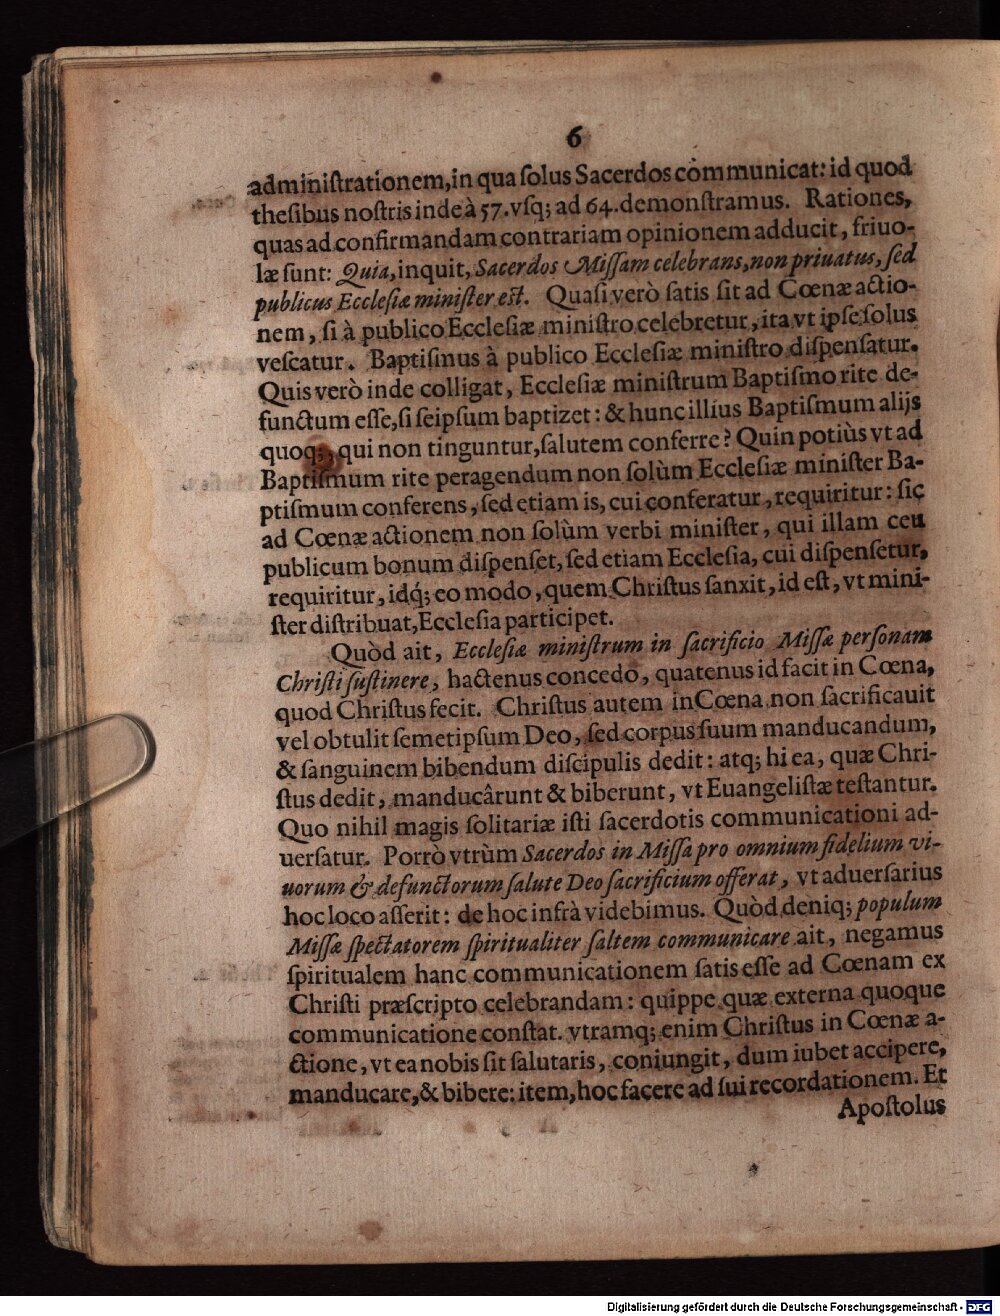 6
adminiſtrationem,in qua ſolus Sacerdos communicat: id quod
theſibus noſtris inde à 57. vſq; ad 64. demonſtramus. Rationes,
quas ad confirmandam contrariam opinionem adducit, friuo-
læ ſunt: Quia, inquit, Sacerdos Miſſam celebrans, non priuatus, ſed
publicus Eccleſiæ miniſter eſt. Quaſi verò ſatis ſit ad Cœnæ actio-
nem, ſi à publico Eccleſiæ miniſtro celebretur, ita vt ipſe ſolus
veſcatur. Baptiſmus à publico Eccleſiæ miniſtro diſpenſatur.
Quis verò inde colligat, Eccleſiæ miniſtrum Baptiſmo rite de-
functum eſſe, ſi ſeipſum baptizet: & hunc illius Baptiſmum alijs
quoq;, qui non tinguntur, ſalutem conferre? Quin potiùs vt ad
Baptiſmum rite peragendum non ſolùm Eccleſiæ miniſter Ba-
ptiſmum conferens, ſed etiam is, cui conferatur, requiritur: ſic
ad Cœnæ actionem non ſolùm verbi miniſter, qui illam ceu
publicum bonum diſpenſet, ſed etiam Eccleſia, cui diſpenſetur,
requiritur, idq́; eo modo, quem Chriſtus ſanxit, id eſt, vt mini-
ſter diſtribuat, Eccleſia participet.
Quòd ait, Eccleſiæ miniſtrum in ſacrificio Miſſæ perſonam
Chriſti ſuſtinere, hactenus concedo, quatenus id facit in Cœna,
quod Chriſtus fecit. Chriſtus autem in Cœna non ſacrificauit
vel obtulit ſemetipſum Deo, ſed corpus ſuum manducandum,
& ſanguinem bibendum diſcipulis dedit: atq; hi ea, quæ Chri-
ſtus dedit, manducârunt & biberunt, vt Euangeliſtæ teſtantur.
Quo nihil magis ſolitariæ iſti ſacerdotis communicationi ad-
uerſatur. Porrò vtrùm Sacerdos in Miſſa pro omnium fidelium vi-
uorum & defunctorum ſalute Deo ſacrificium offerat, vt aduerſarius
hoc loco aſſerit: de hoc infrà videbimus. Quòd deniq; populum
Miſſæ ſpectatorem ſpiritualiter ſaltem communicare ait, negamus
ſpiritualem hanc communicationem ſatis eſſe ad Cœnam ex
Chriſti præſcripto celebrandam: quippe quæ externa quoque
communicatione conſtat. vtramq; enim Chriſtus in Cœnæ a-
ctione, vt ea nobis ſit ſalutaris, coniungit, dum iubet accipere,
manducare, & bibere: item, hoc facere ad ſui recordationem. Et
Apoſtolus
Digitalisierung gefördert durch die Deutsche Forschungsgemeinschaft - DFG